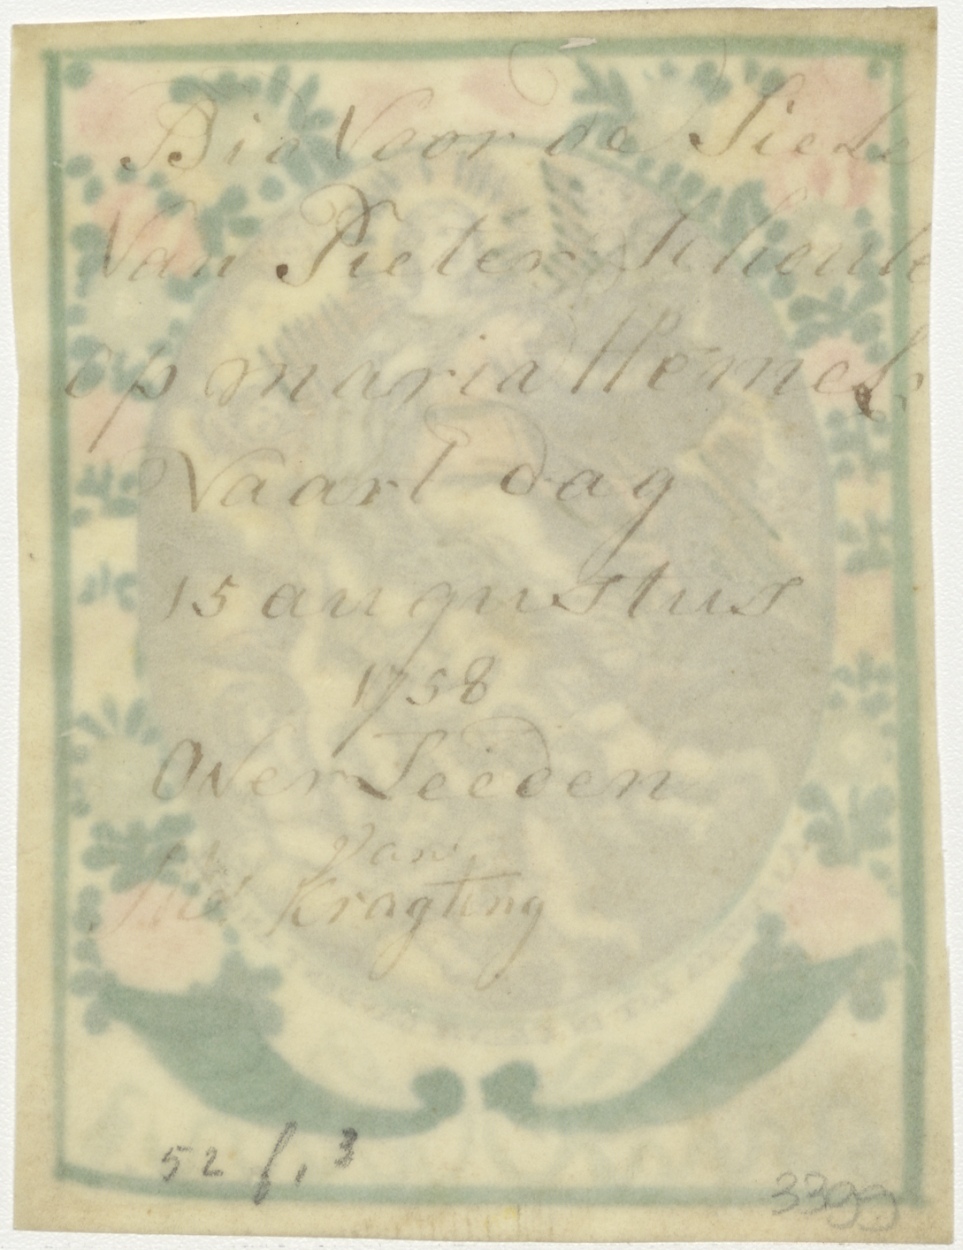 Bid Voor de Siele
Van Pieter Schenk
op maria Hemels
Vaart dag
15 augustus
1758
Over Leeden
Van
Kragting
52 f, 3
3399